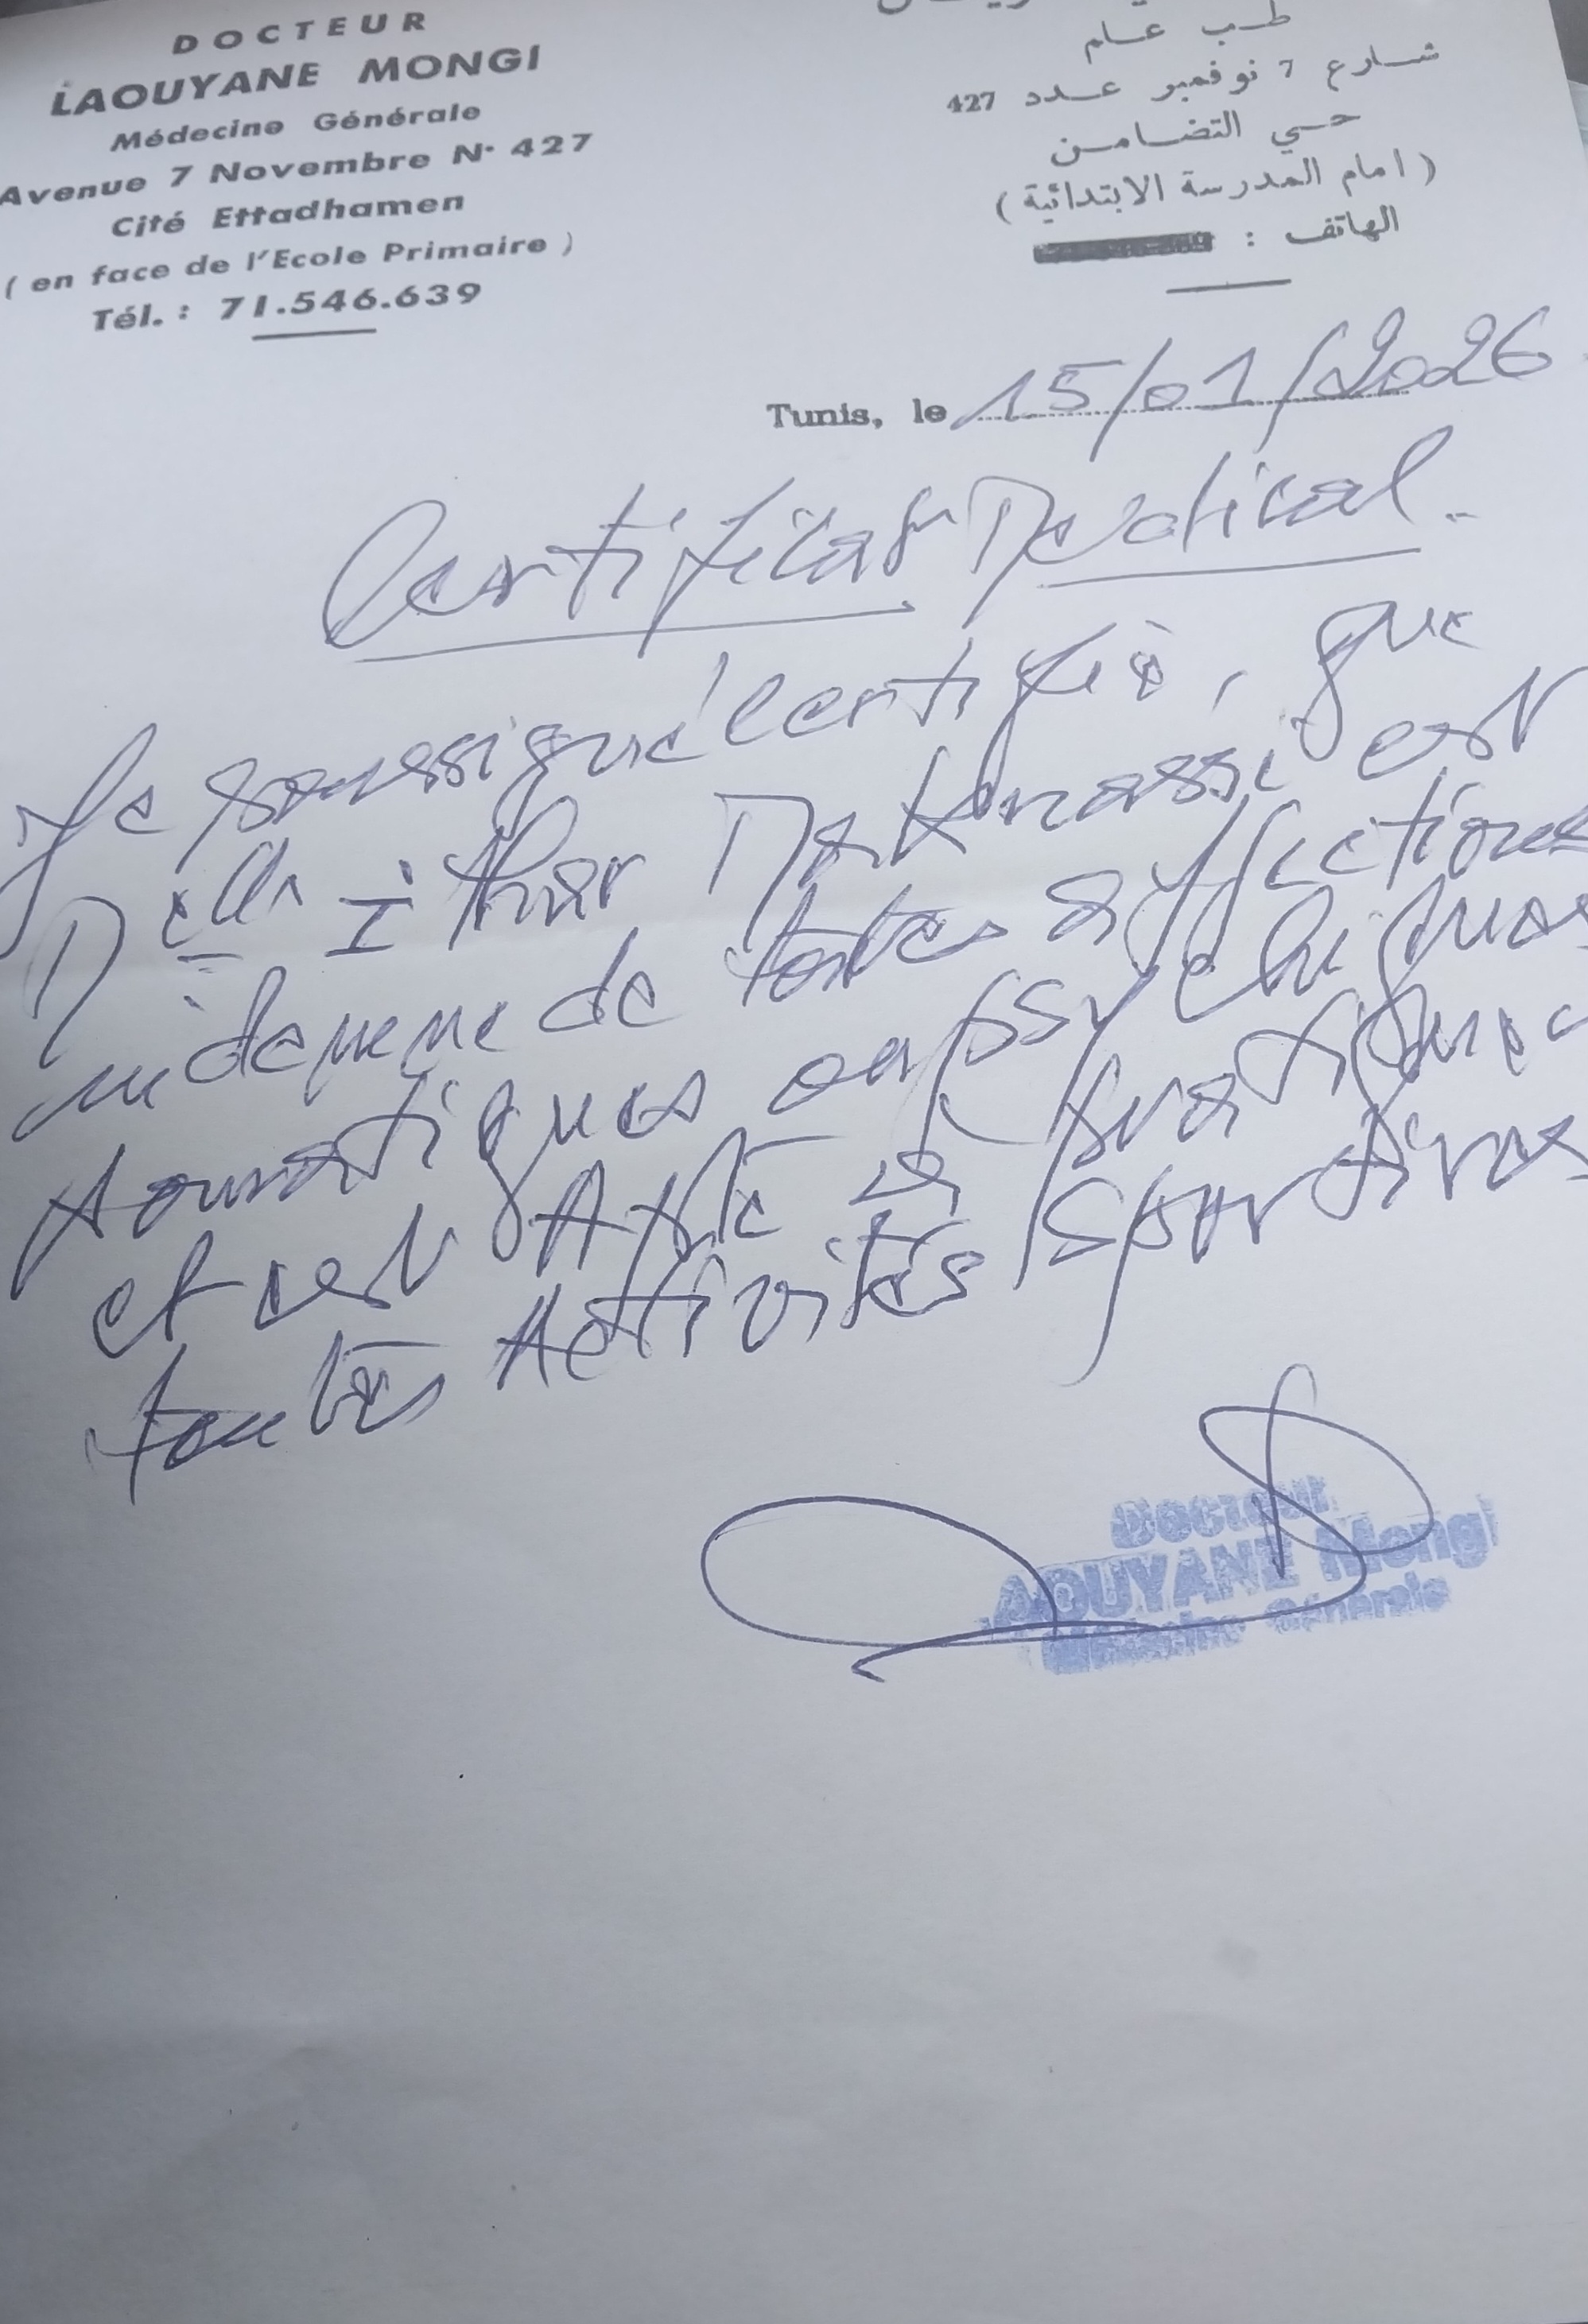 DOCTEUR
LAOUYANE MONGI
Médecine Générale
Avenue 7 Novembre N° 427
Cité Ettadhamen
( en face de l'Ecole Primaire )
Tél. : 71.546.639
طب عام
شارع 7 نوفمبر عدد 427
حي التضامن
( امام المدرسة الابتدائية )
الهاتف :
Tunis, le 15/01/2026
Certificat Medical.
Je soussigné certifie, que
Melle Ithar est
indemne de toutes affections
somatiques ou psychiques
et est Apte à pratiquer
toutes Activités sportives
Docteur
AOUYANE Mongi
Médecine Générale